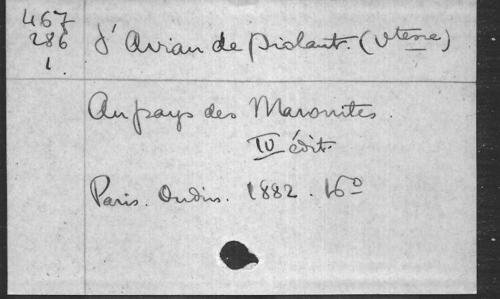 467
286
1.
d'Avian de Piolant. (Vtesse)
Au pays des Maronites.
IV édit.
Paris. Oudin. 1882. 16o